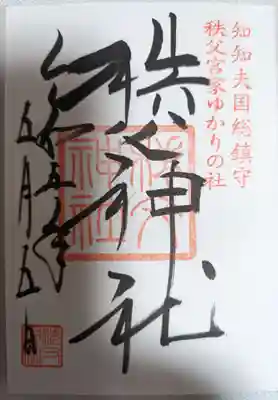 知知夫国総鎮守
秩父宮家ゆかりの社
秩父神社
秩父神社
令和五年
五月五日